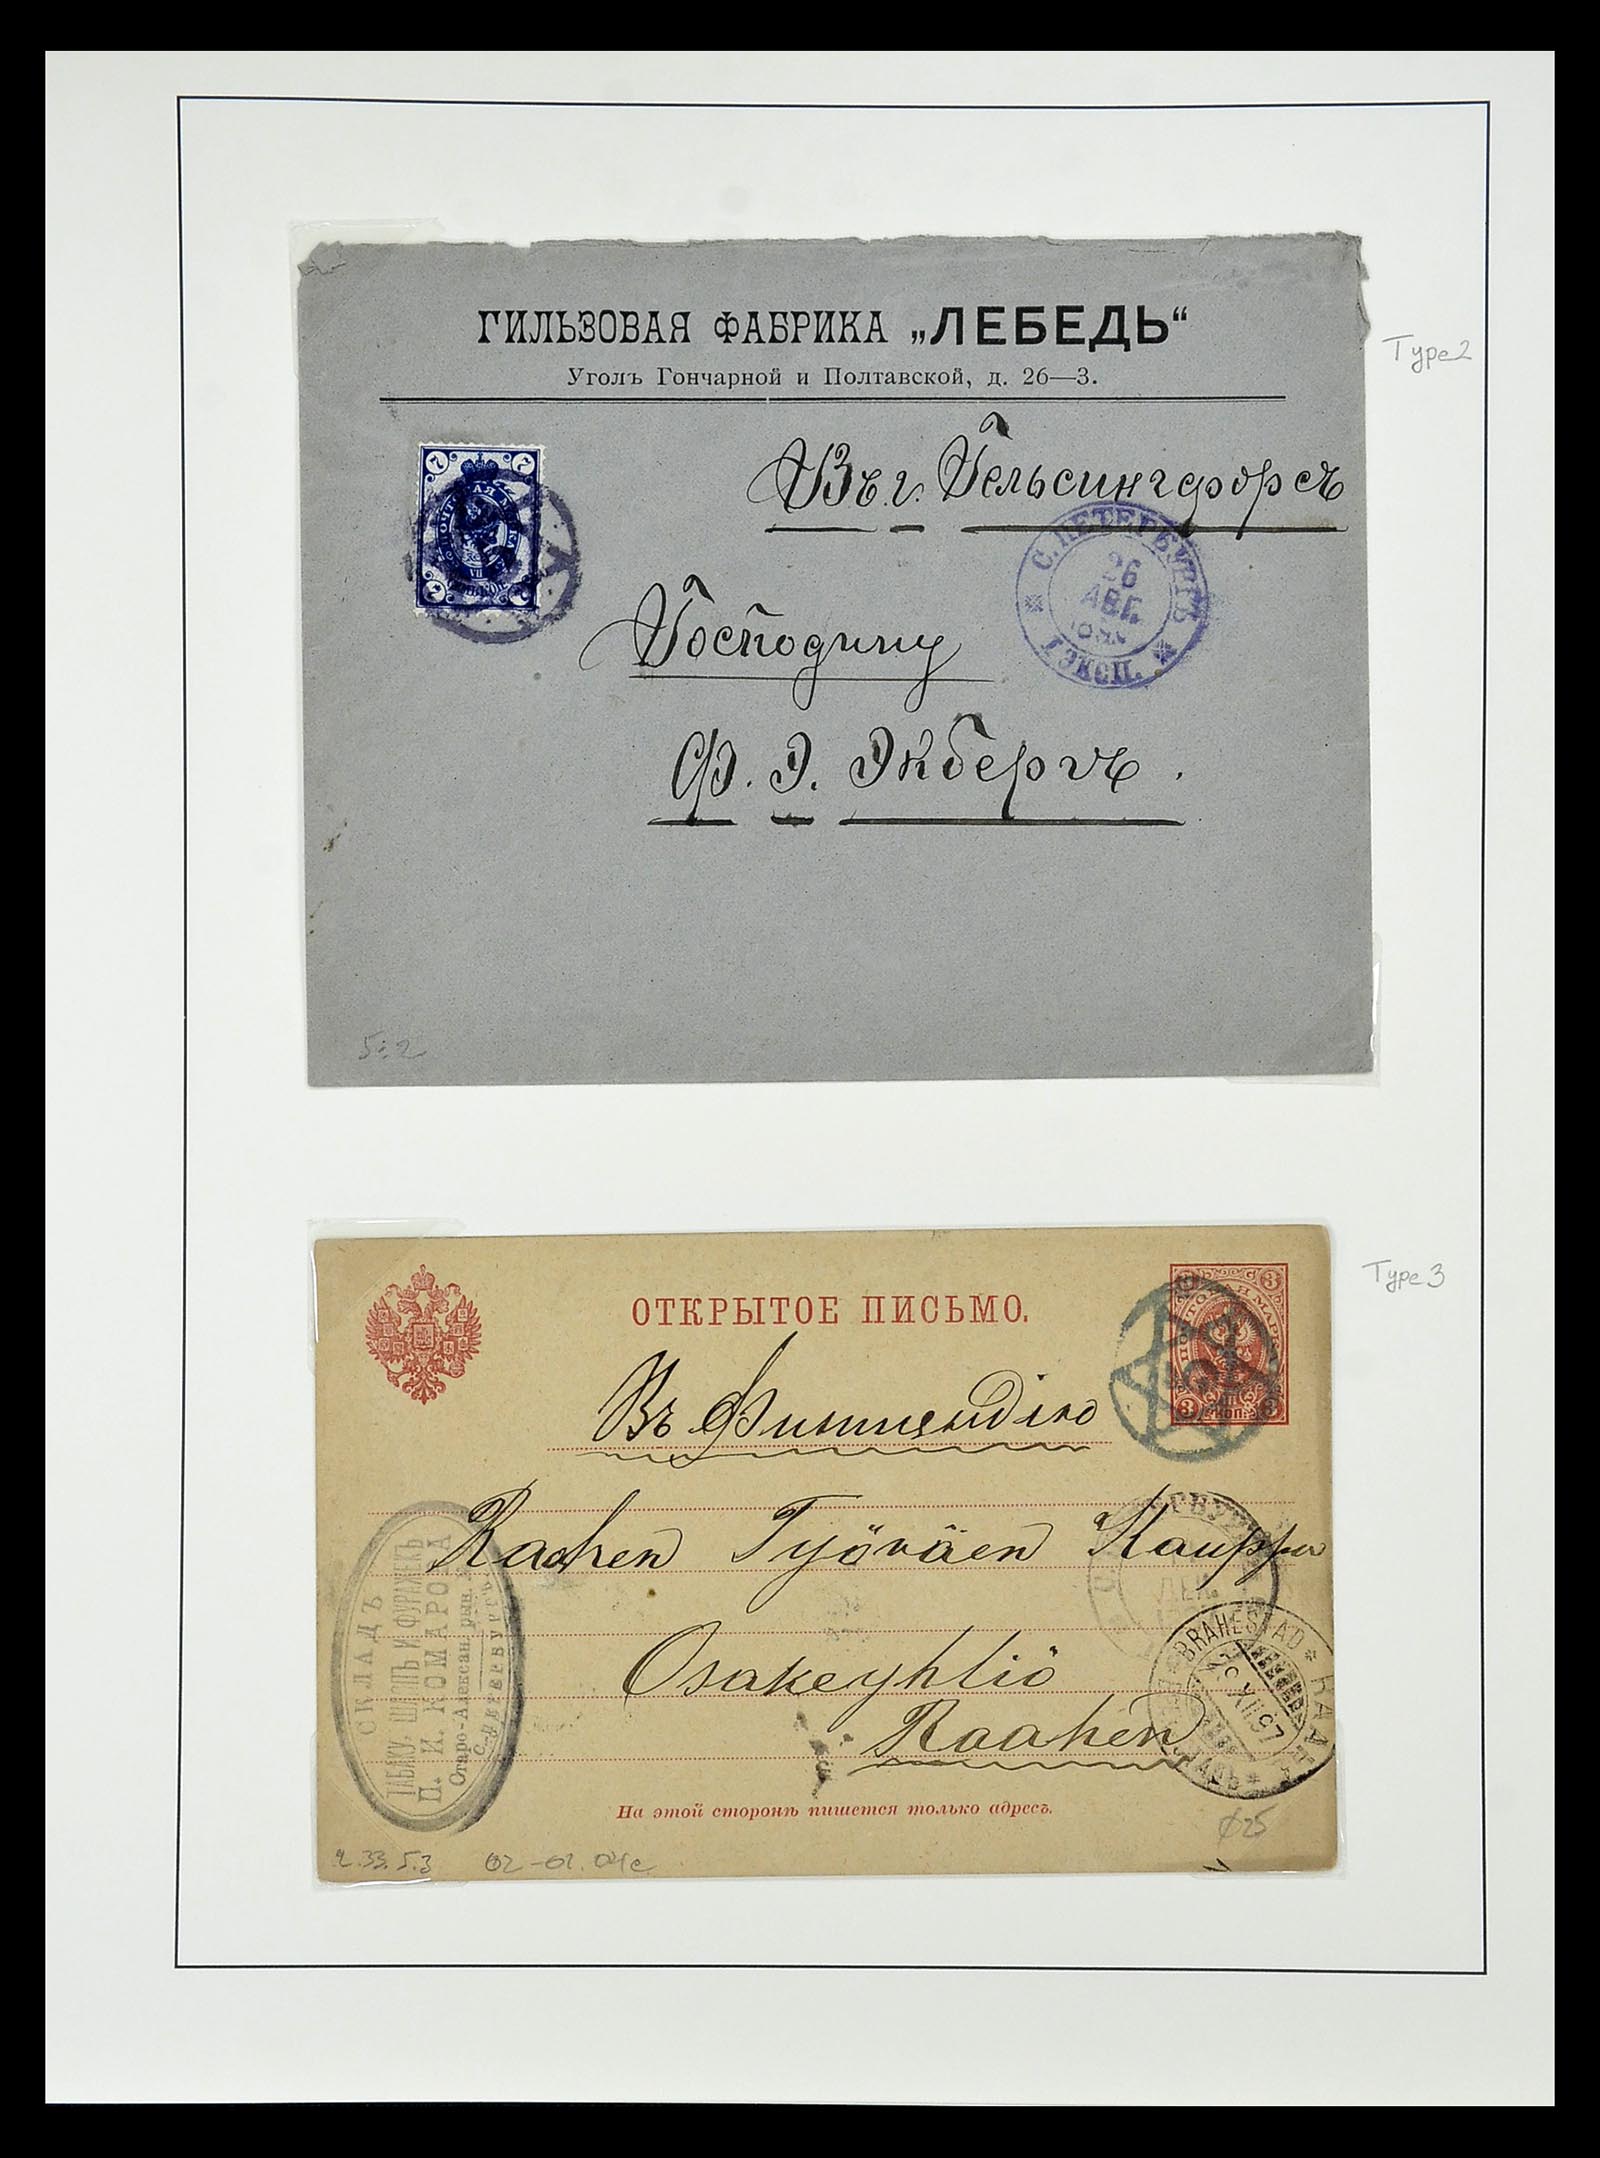 ГИЛЬЗОВАЯ ФАБРИКА „ЛЕБЕДЬ“
Уголъ Гончарной и Полтавской, д. 26—3.
Type 2
7 7
ПОЧТОВАЯ МАРКА
VII
7 7
Въ г. Гельсингфорсъ
С. ПЕТЕРБУРГЪ
26
АВГ.
I ЭКСП.
Господину
Ф. Э. Экбергъ.
5:2
Type 3
ОТКРЫТОЕ ПИСЬМО.
3 3
ПОЧТОВАЯ МАРКА
3 КОП. 3
5
Въ Финляндiю
Raahen Työväen Kauppa
Osakeyhtiö
Raahen
СКЛАДЪ
ШЛЯПЪ И ФУРАЖЕКЪ
П. И. КОМАРОВА
Старо-Александ. рын.
С-ПЕТЕРБУРГЪ
ДЕК.
BRAHESTAD * RAAHE
XII 97
На этой сторонѣ пишется только адресъ.
2.33.5.3
02-02.04c
¢25